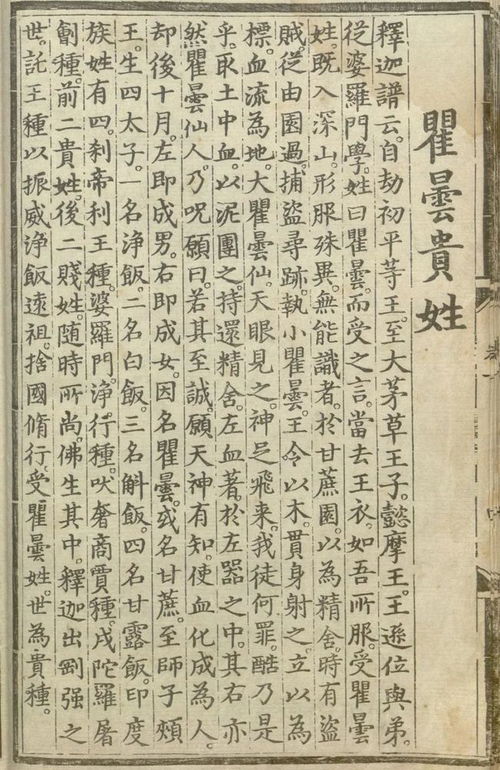 瞿曇貴姓
釋迦譜云。自劫初平等王。至大茅草王子。懿摩王。王遜位與弟。
從婆羅門學。姓曰瞿曇。而受之言。當去王衣。如吾所服。受瞿曇
姓。既入深山。形服殊異。無能識者。於甘蔗園。以為精舍。時有盜
賊。從由園過。捕盜尋跡。執小瞿曇。王令以木。貫身射之。立以為
標。血流為地。大瞿曇仙。天眼見之。神足飛來。我徒何罪。酷乃是
乎。取土中血。以泥團之。持還精舍。左血著。於左器之中。其右亦
然。瞿曇仙人。乃呪願曰。若其至誠。願天神有知。使血化成為人。
却後十月。左即成男。右即成女。因名瞿曇。或名甘蔗。至師子頰
王。生四太子。一名淨飯。二名白飯。三名斛飯。四名甘露飯。印度
族姓有四。刹帝利王種。婆羅門淨行種。吠奢商賈種。戌陀羅屠
劊種。前二貴姓。後二賤姓。随時所尚。佛生其中。釋迦出剛强之
世。託王種以振威。淨飯遠祖。捨國脩行。受瞿曇姓。世為貴種。
卷一